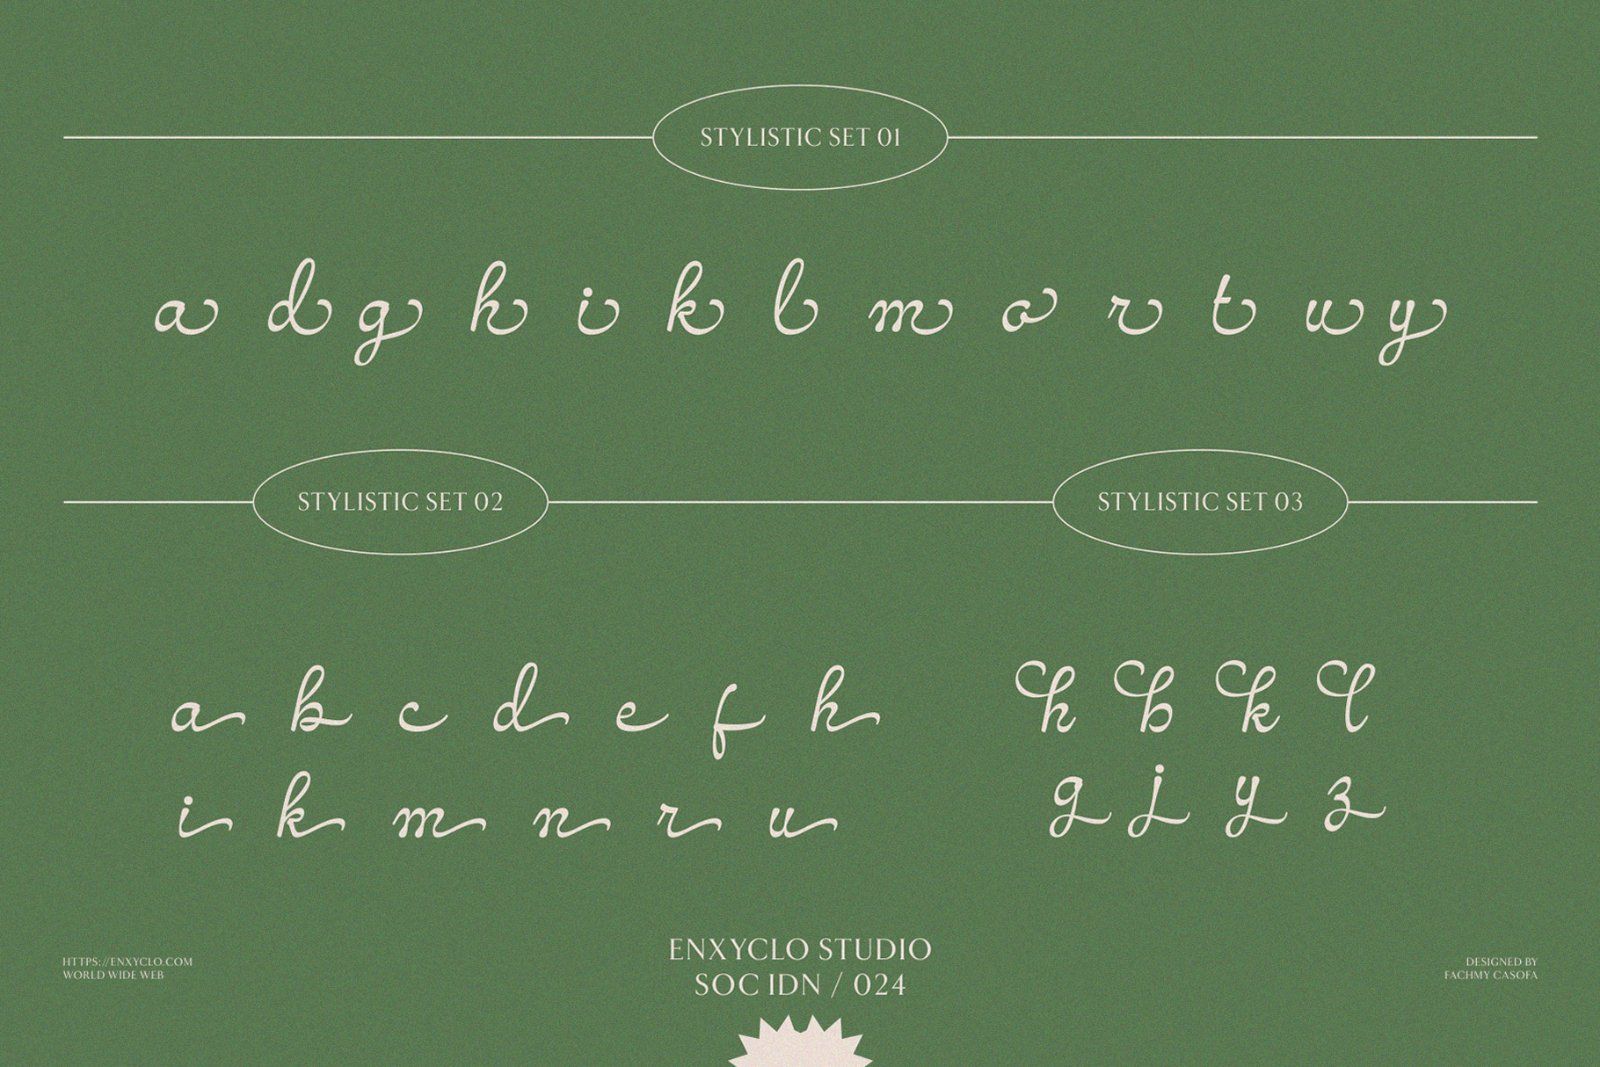 STYLISTIC SET 01
a d g h i k l m o r t w y
STYLISTIC SET 02
a b c d e f h
i k m n r u
STYLISTIC SET 03
h b k l
g j y z
ENXYCLO STUDIO
SOC IDN / 024
HTTPS://ENXYCLO.COM
WORLD WIDE WEB
DESIGNED BY
FACHMY CASOFA